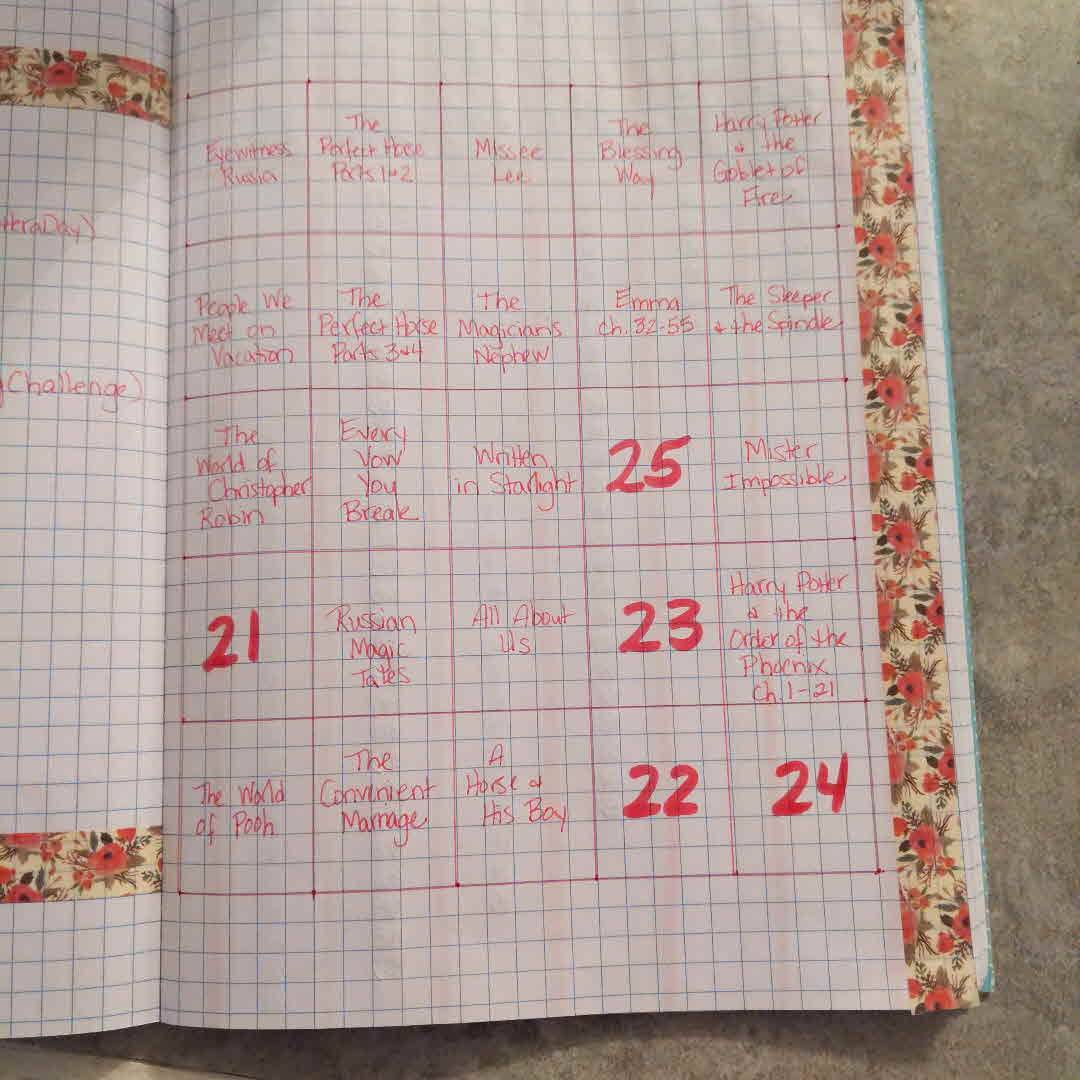 theraDay)
Challenge)
Eyewitness
Russia
The
Perfect Horse
Parts 1+2
Missee
Lee
The
Blessing
Way
Harry Potter
+ the
Goblet of
Fire
People We
Meet on
Vacation
The
Perfect Horse
Parts 3+4
The
Magician's
Nephew
Emma
ch. 32-55
The Sleeper
+ the Spindle
The
World of
Christopher
Robin
Every
Vow
You
Break
Written
in Starlight
25
Mister
Impossible
21
Russian
Magic
Tales
All About
Us
23
Harry Potter
+ the
Order of the
Phoenix
Ch. 1-21
The World
of Pooh
The
Convinient
Marriage
A
Horse +
His Boy
22
24